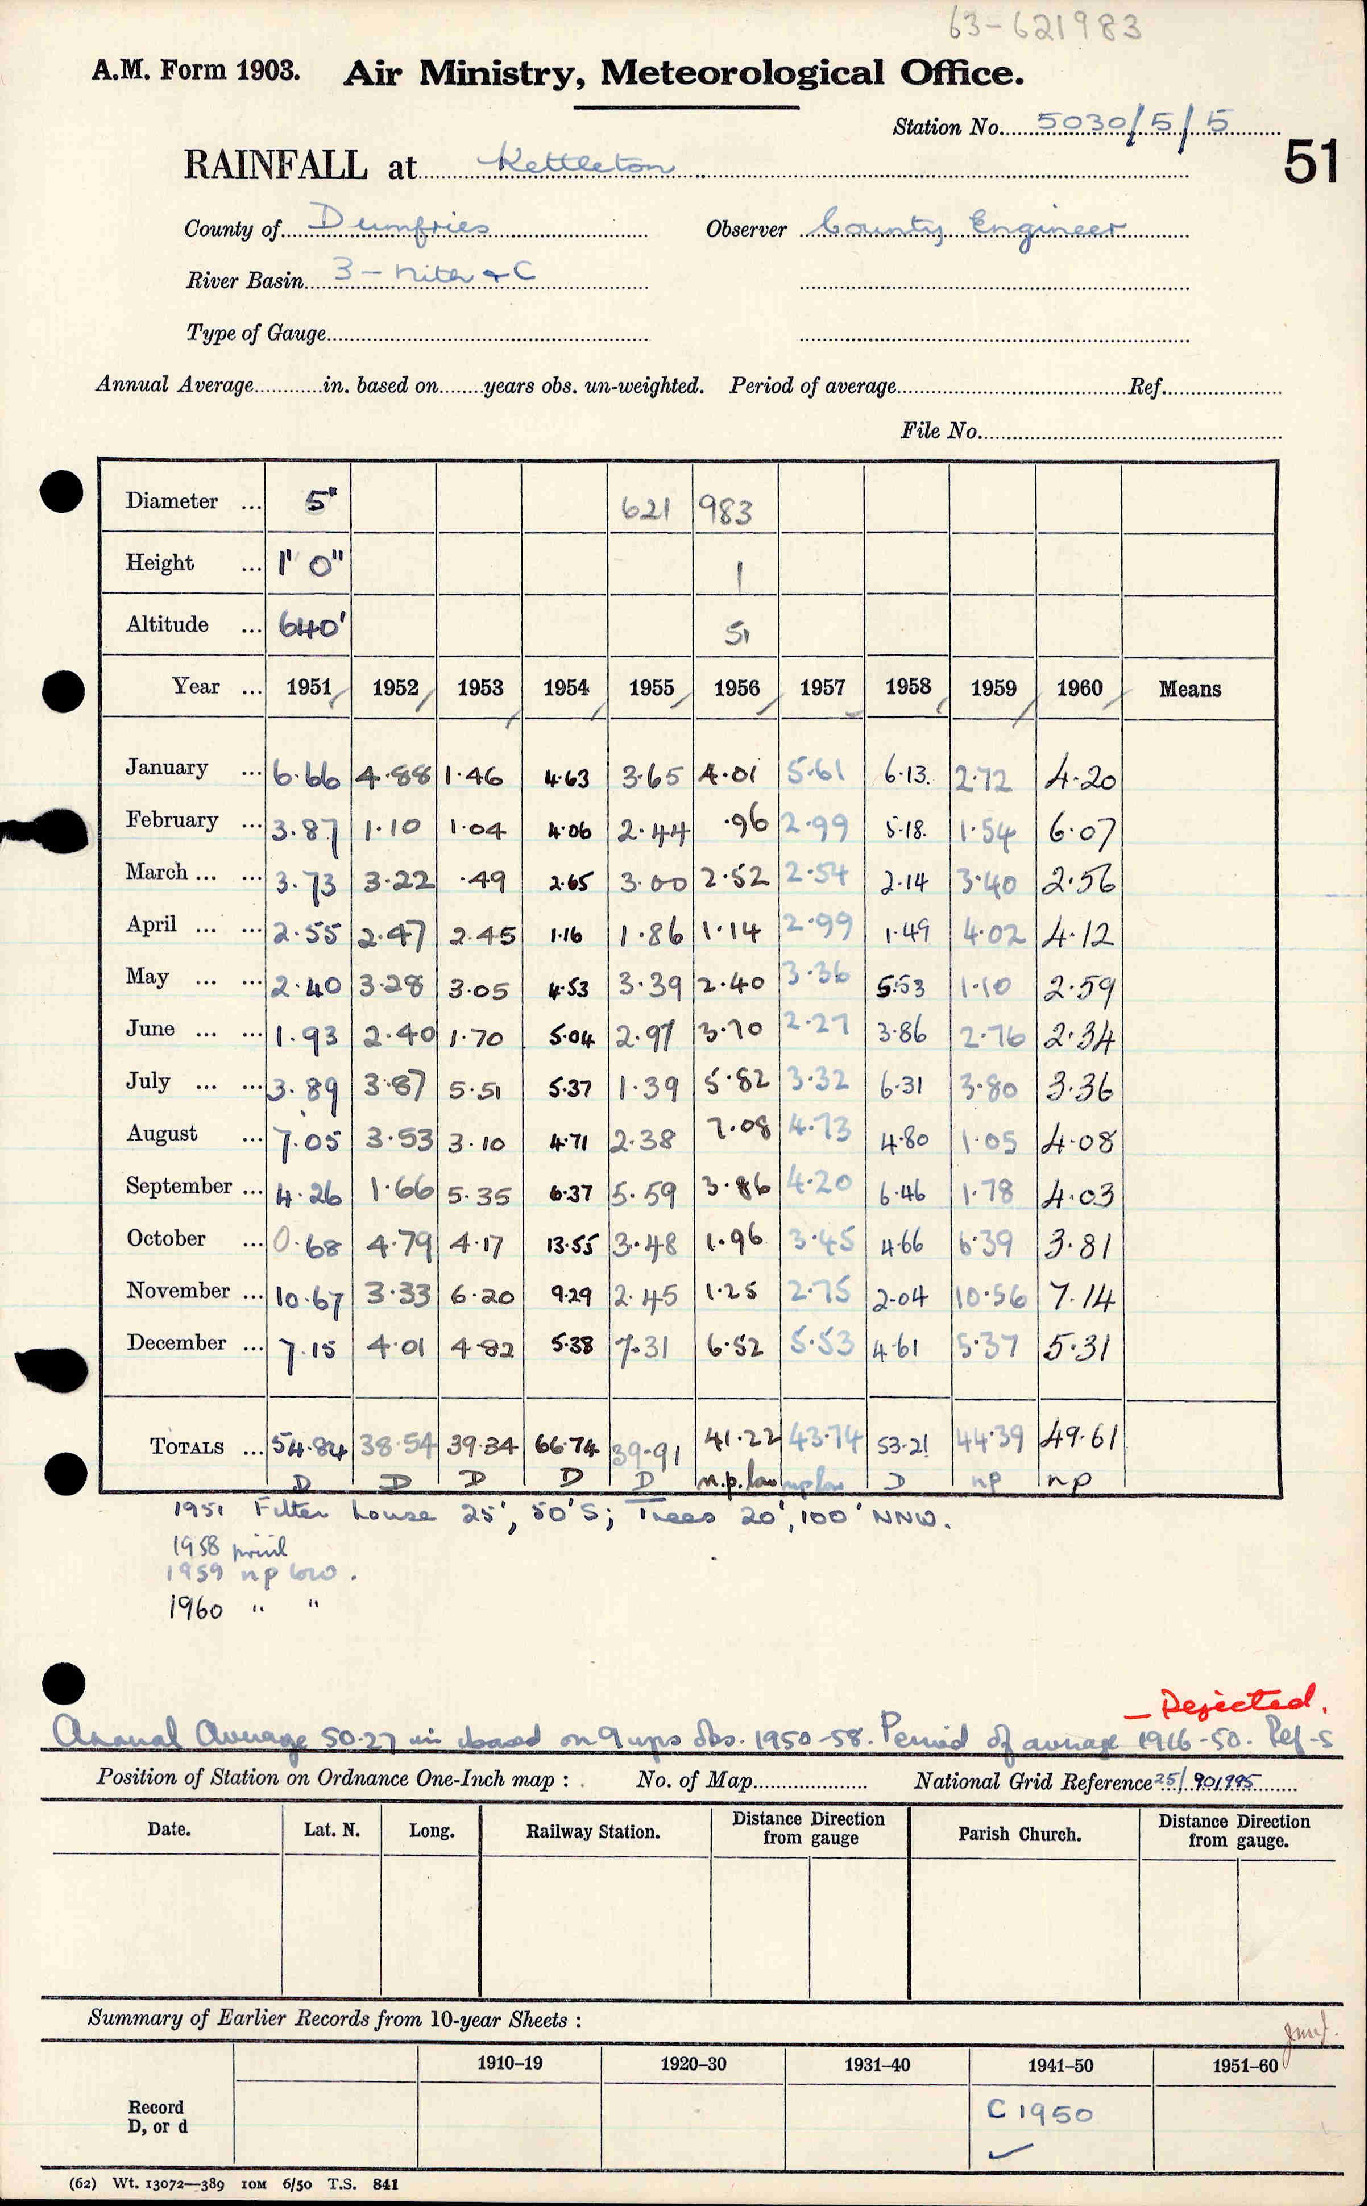 63-621983
A.M. Form 1903. Air Ministry, Meteorological Office.
Station No. 5030/5/5
51
RAINFALL at Kettleton
County of Dumfries Observer County Engineer
River Basin 3 - Nith & C
Type of Gauge
Annual Average in. based on years obs. un-weighted. Period of average Ref.
File No.
Diameter ... 5" 621 983
Height ... 1' 0" 1
Altitude ... 640' 51
Year ... 1951 1952 1953 1954 1955 1956 1957 1958 1959 1960 Means
January ... 6.66 4.88 1.46 4.63 3.65 4.01 5.61 6.13 2.72 4.20
February ... 3.87 1.10 1.04 4.06 2.44 .96 2.99 5.18 1.54 6.07
March ... ... 3.73 3.22 .49 2.65 3.00 2.52 2.54 2.14 3.40 2.56
April ... ... 2.55 2.47 2.45 1.16 1.86 1.14 2.99 1.49 4.02 4.12
May ... ... 2.40 3.28 3.05 4.53 3.39 2.40 3.36 5.53 1.10 2.59
June ... ... 1.93 2.40 1.70 5.04 2.97 3.70 2.27 3.86 2.76 2.34
July ... ... 3.89 3.87 5.51 5.37 1.39 5.82 3.32 6.31 3.80 3.36
August ... 7.05 3.53 3.10 4.71 2.38 7.08 4.73 4.80 1.05 4.08
September ... 4.26 1.66 5.35 6.37 5.59 3.86 4.20 6.46 1.78 4.03
October ... 0.68 4.79 4.17 13.55 3.48 1.96 3.45 4.66 6.39 3.81
November ... 10.67 3.33 6.20 9.29 2.45 1.25 2.75 2.04 10.56 7.14
December ... 7.15 4.01 4.82 5.38 7.31 6.52 5.53 4.61 5.37 5.31
TOTALS ... 54.84 38.54 39.34 66.74 39.91 41.22 43.74 53.21 44.39 49.61
D D D D D n.p. low np low D np np
1951 Filter house 25', 50' S; Trees 20', 100' NNW.
1958
1959 np low.
1960 " "
- Rejected.
Annual Average 50.27 in based on 9 yrs obs. 1950-58. Period of average 1916-50. Ref-S
Position of Station on Ordnance One-Inch map : No. of Map National Grid Reference 25/901995
Date. Lat. N. Long. Railway Station. Distance Direction from gauge Parish Church. Distance Direction from gauge.
Summary of Earlier Records from 10-year Sheets :
1910-19 1920-30 1931-40 1941-50 1951-60
Record
D, or d
C 1950
✓
(62) Wt. 13072—389 10M 6/50 T.S. 841